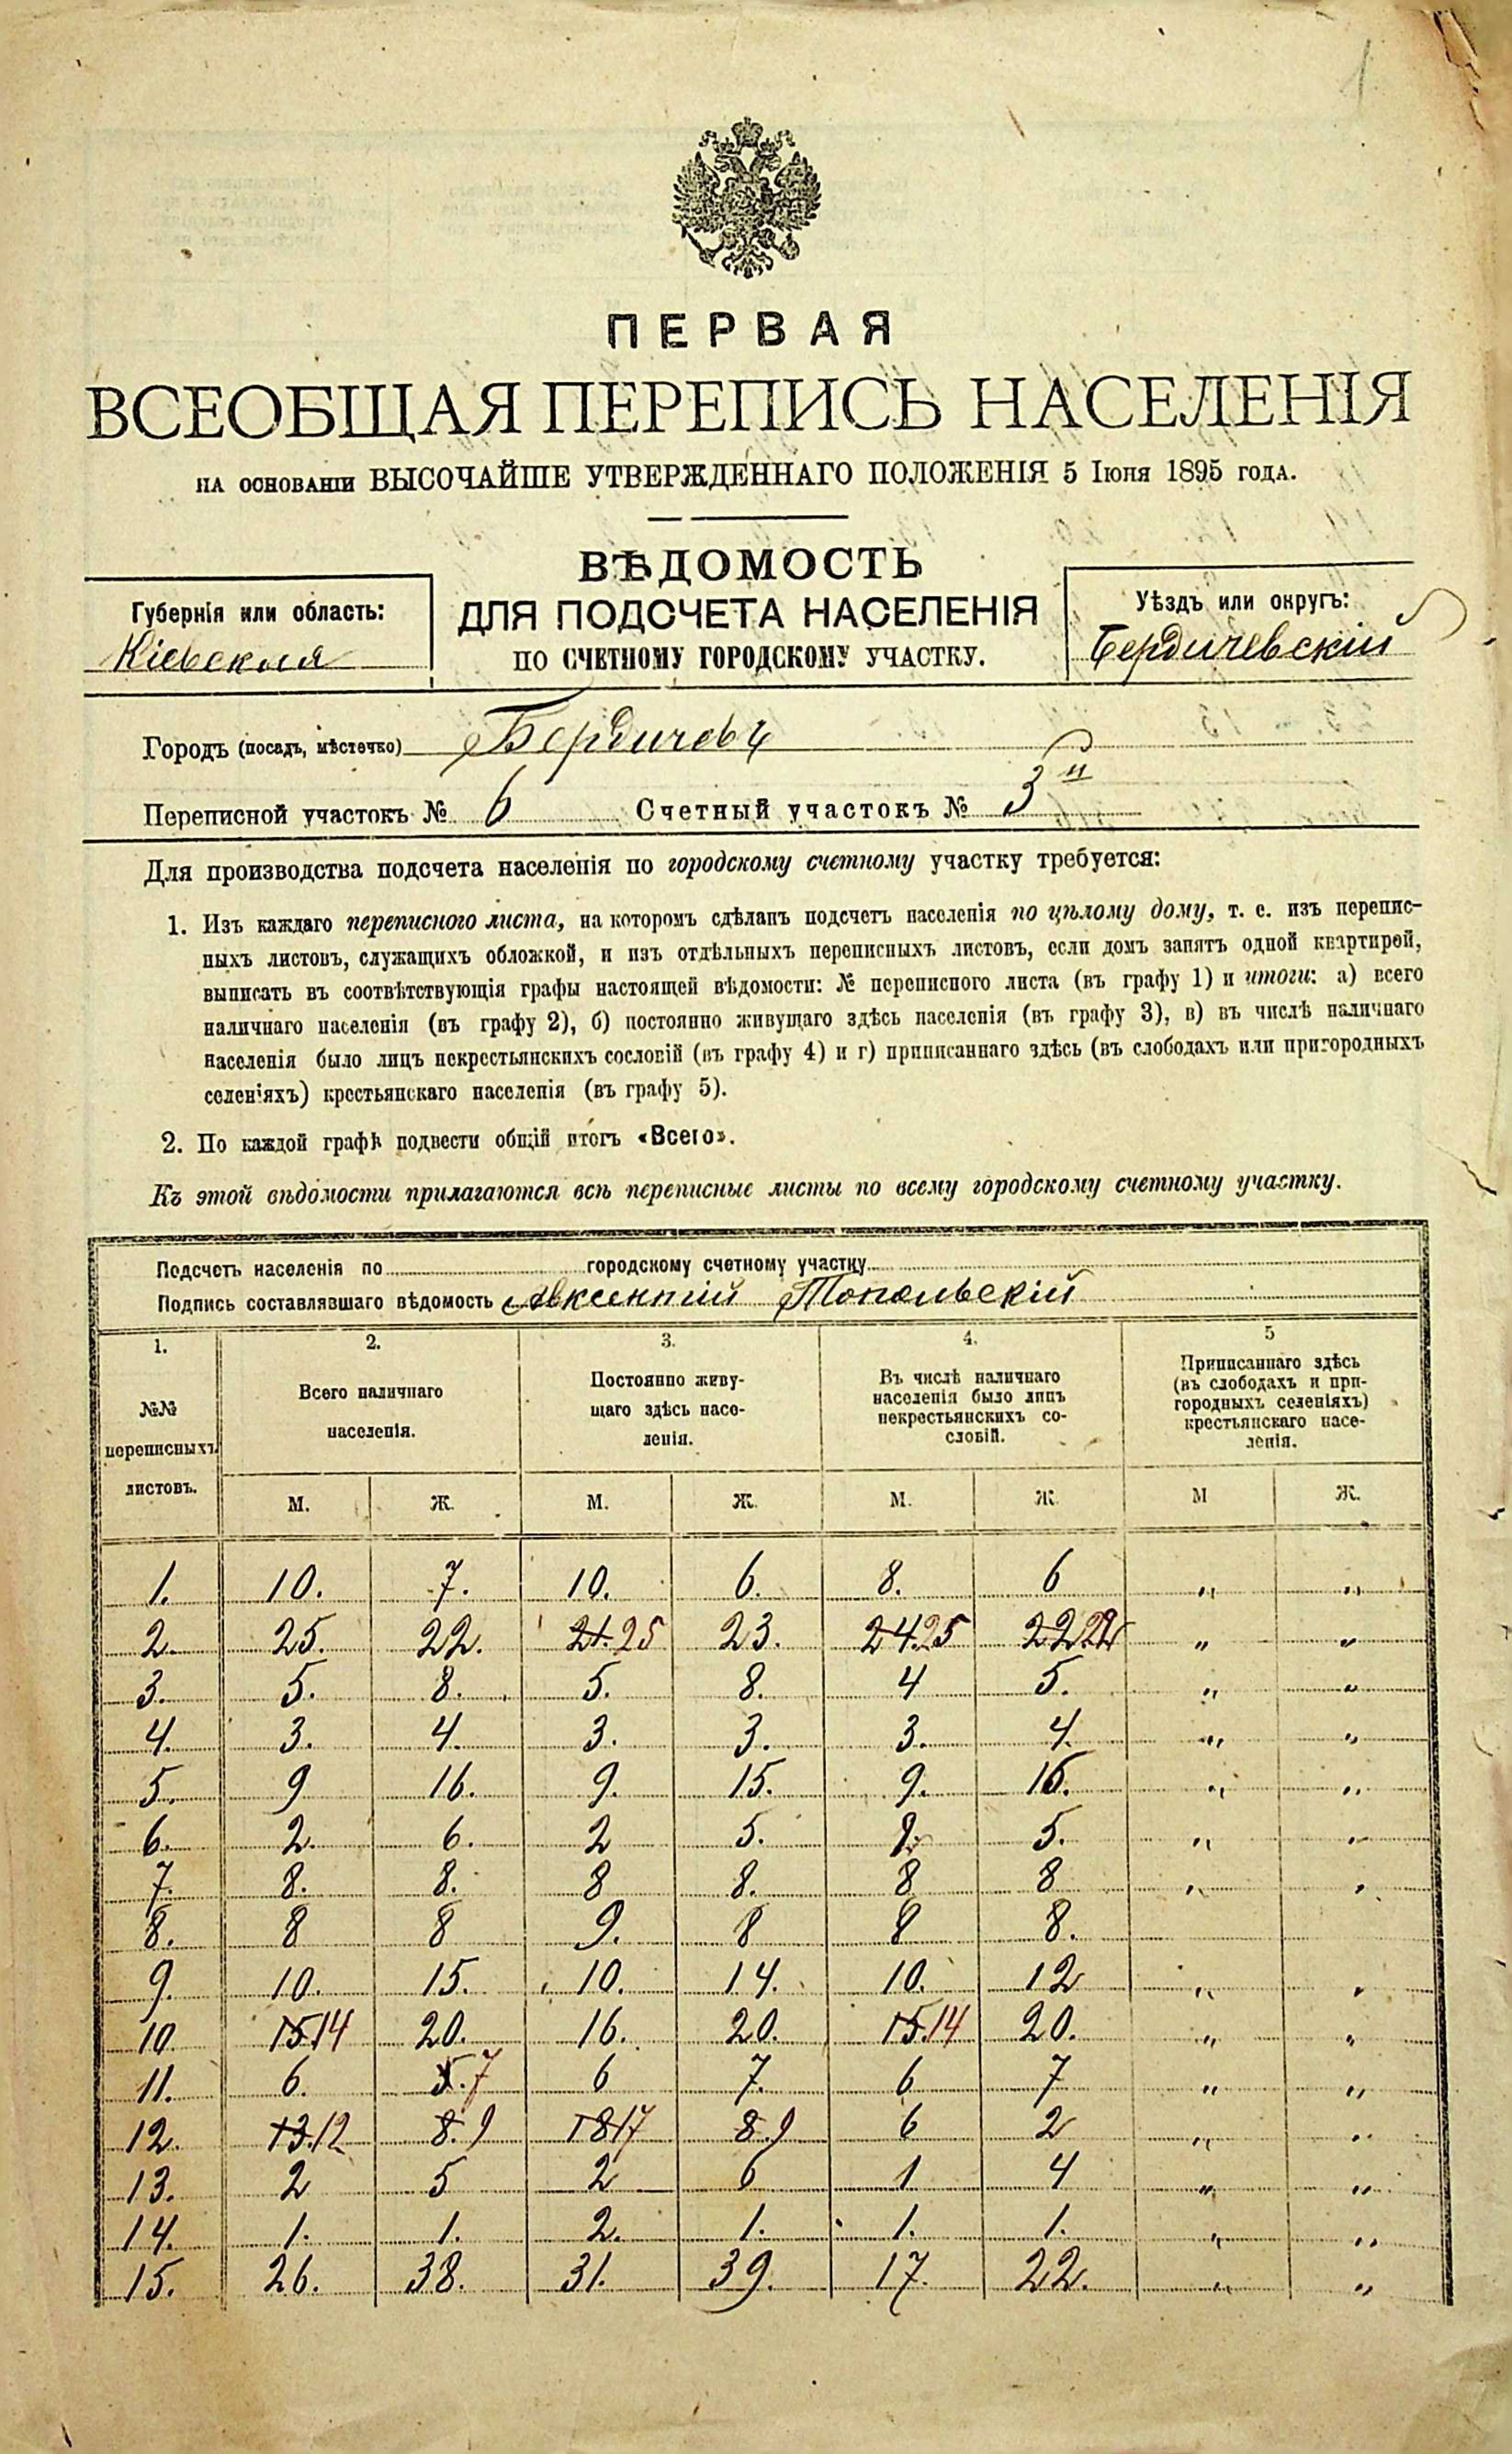 ПЕРВАЯ
ВСЕОБЩАЯ ПЕРЕПИСЬ НАСЕЛЕНІЯ
НА ОСНОВАНІИ ВЫСОЧАЙШЕ УТВЕРЖДЕННАГО ПОЛОЖЕНІЯ 5 Іюня 1895 ГОДА.
ВѢДОМОСТЬ
ДЛЯ ПОДСЧЕТА НАСЕЛЕНІЯ
ПО СЧЕТНОМУ ГОРОДСКОМУ УЧАСТКУ.
Губернія или область:
Кіевская
Уѣздъ или округъ:
Бердичевскій
Городъ (посадъ, мѣстечко) Бердичевъ
Переписной участокъ № 6 Счетный участокъ № 3й
Для производства подсчета населенія по городскому счетному участку требуется:
1. Изъ каждаго переписного листа, на которомъ сдѣланъ подсчетъ населенія по цѣлому дому, т. е. изъ перепис-
ныхъ листовъ, служащихъ обложкой, и изъ отдѣльныхъ переписныхъ листовъ, если домъ занятъ одной квартирой,
выписать въ соотвѣтствующія графы настоящей вѣдомости: № переписного листа (въ графу 1) и итоги: а) всего
наличнаго населенія (въ графу 2), б) постоянно живущаго здѣсь населенія (въ графу 3), в) въ числѣ наличнаго
населенія было лицъ некрестьянскихъ сословій (въ графу 4) и г) приписаннаго здѣсь (въ слободахъ или пригородныхъ
селеніяхъ) крестьянскаго населенія (въ графу 5).
2. По каждой графѣ подвести общій итогъ «Всего».
Къ этой вѣдомости прилагаются всѣ переписные листы по всему городскому счетному участку.
Подсчетъ населенія по городскому счетному участку
Подпись составлявшаго вѣдомость Авксентий Топольскій
1. 2. 3. 4. 5
№№
переписныхъ
листовъ.
Всего наличнаго
населенія.
Постоянно живу-
щаго здѣсь насе-
ленія.
Въ числѣ наличнаго
населенія было лицъ
некрестьянскихъ со-
словій.
Приписаннаго здѣсь
(въ слободахъ и при-
городныхъ селеніяхъ)
крестьянскаго насе-
ленія.
М. Ж. М. Ж. М. Ж. М Ж.
1. 10. 7. 10. 6. 8. 6 „ „
2. 25. 22. 21. 25 23. 24. 25 22 22 „ „
3. 5. 8. 5. 8. 4 5. „ „
4. 3. 4. 3. 3. 3. 4. „ „
5. 9 16. 9. 15. 9. 16. „ „
6. 2. 6. 2 5. 2. 5. „ „
7. 8. 8. 8 8. 8 8 „ „
8. 8 8 9. 8 8 8.
9. 10. 15. 10. 14. 10. 12 „ „
10. 15. 14 20. 16. 20. 15. 14 20. „ „
11. 6. 5. 7 6 7. 6 7 „ „
12. 13. 12 8. 9 18 17 8. 9 6 2 „ „
13. 2 5 2 6 1 4 „ „
14. 1. 1. 2. 1. 1. 1. „ „
15. 26. 38. 31. 39. 17. 22. „ „